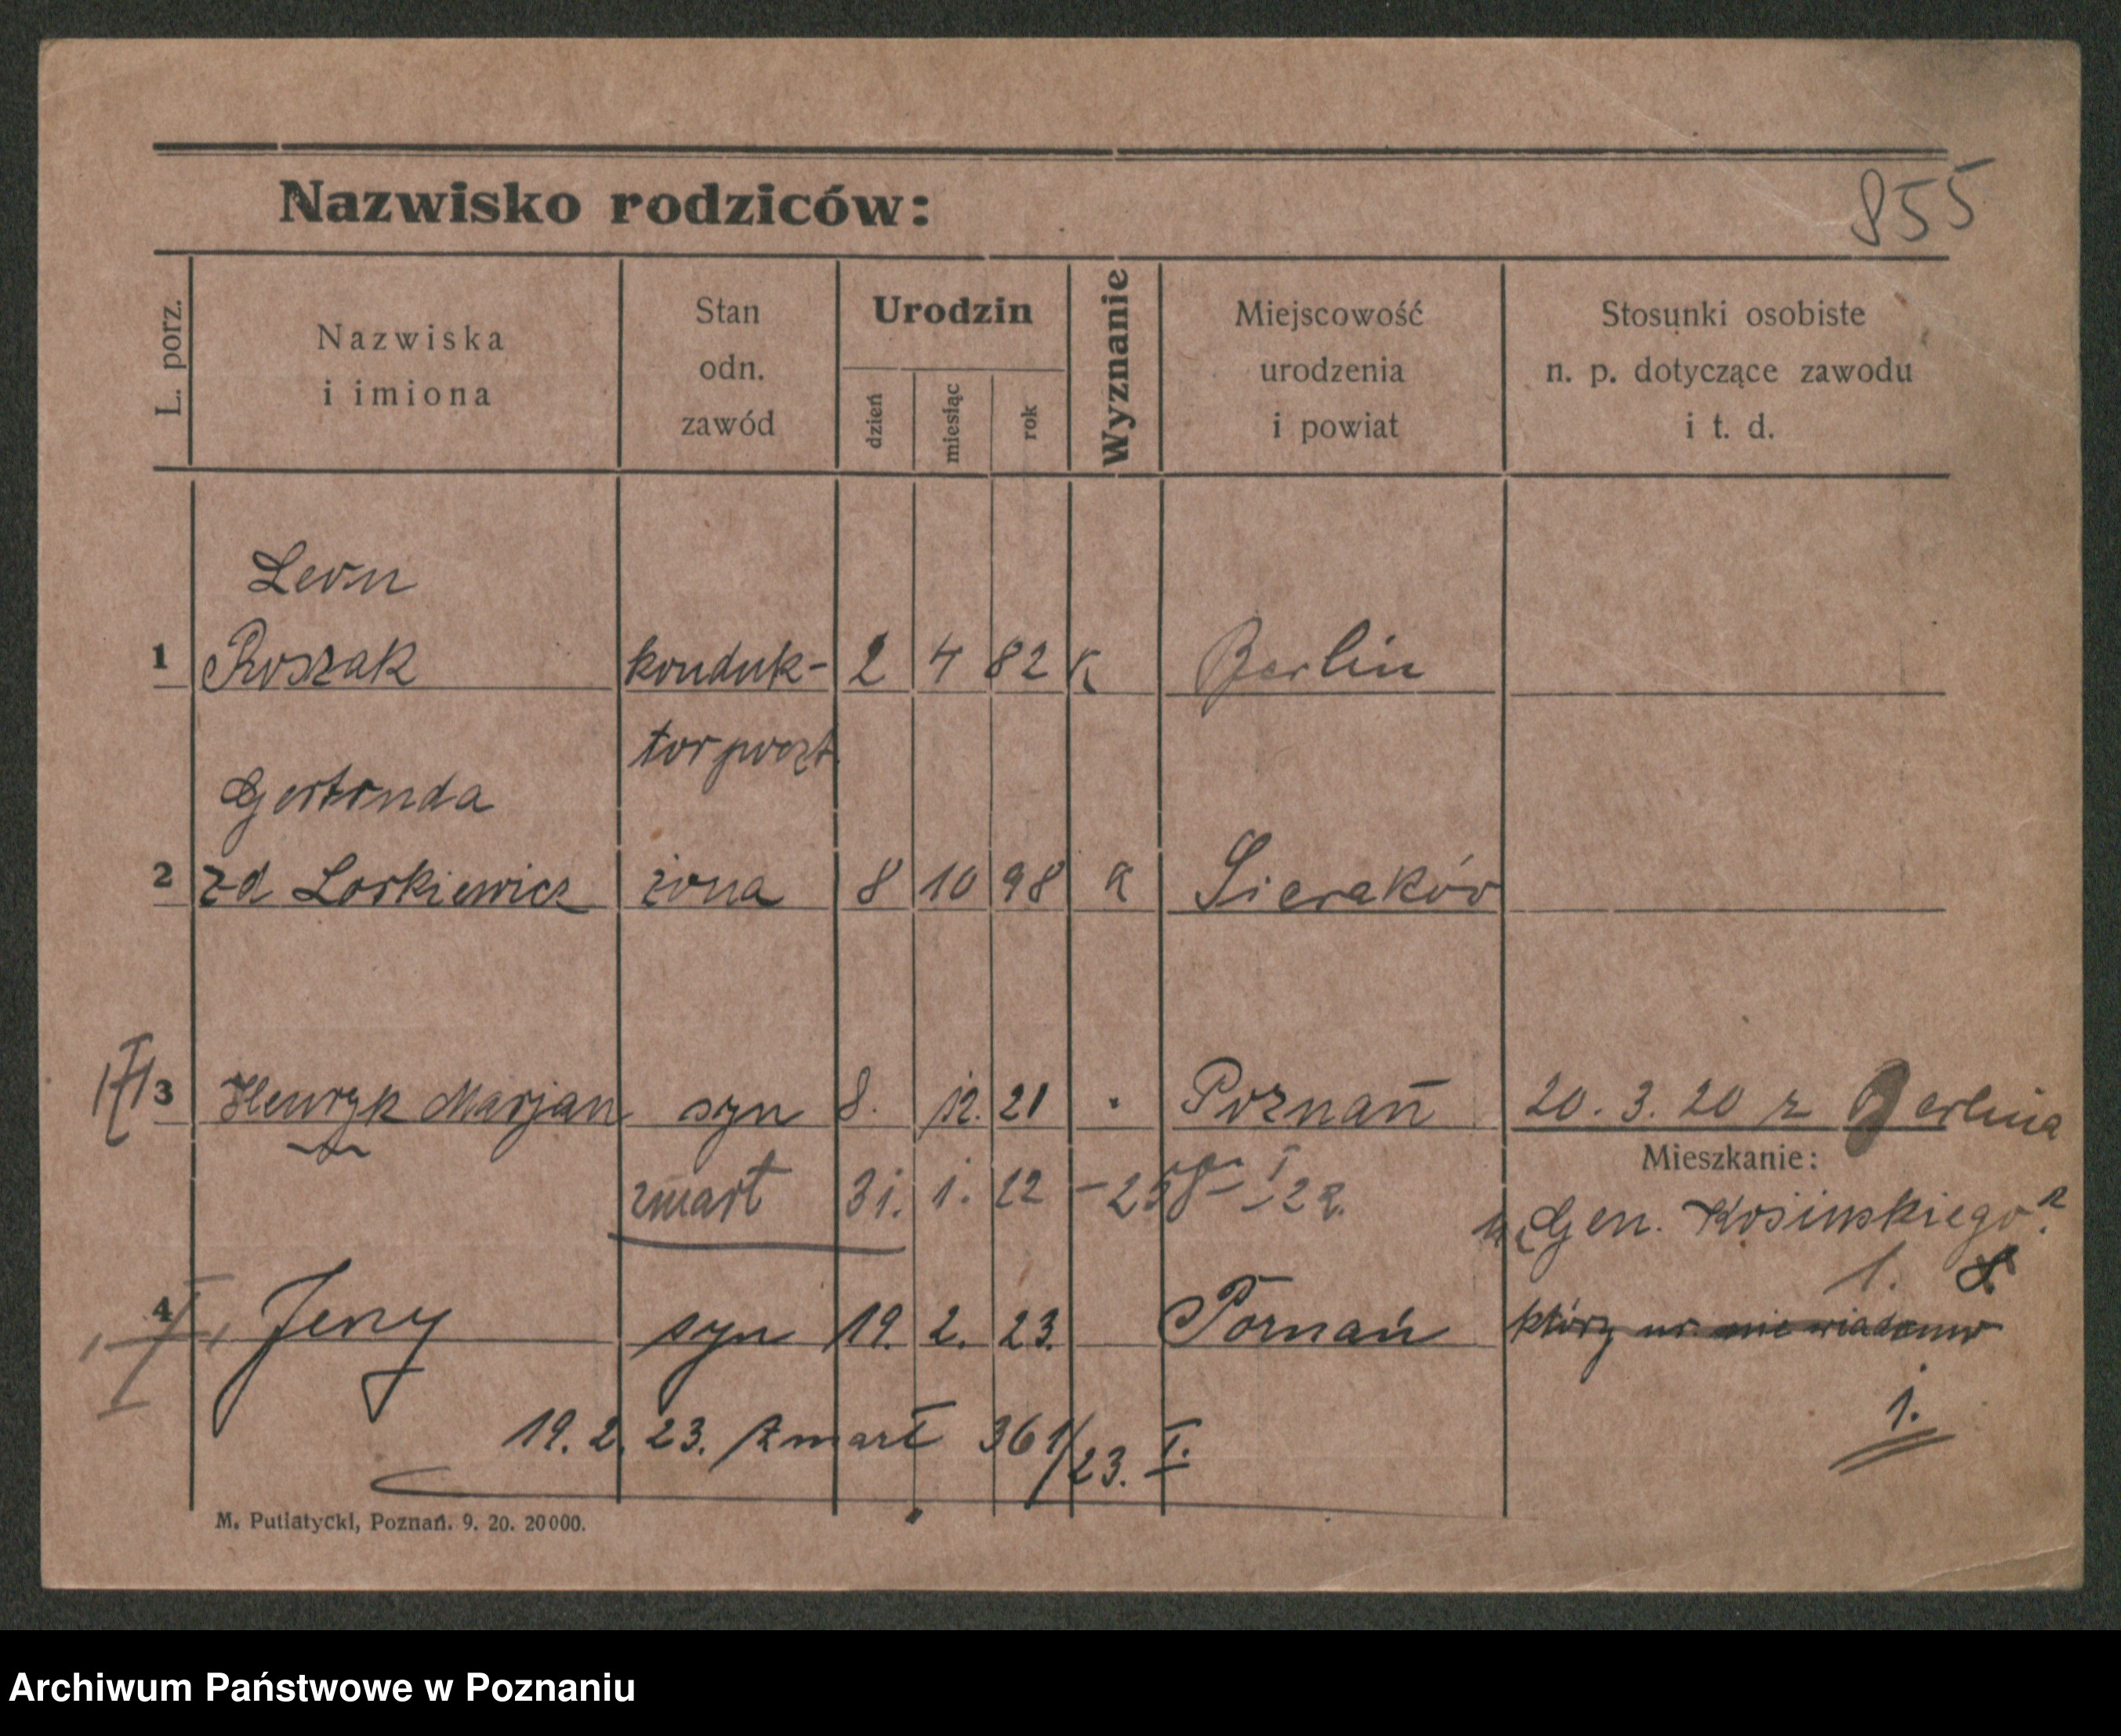 855
Nazwisko rodziców:
L. porz.
Nazwiska
i imiona
Stan
odn.
zawód
Urodzin
dzień
miesiąc
rok
Wyznanie
Miejscowość
urodzenia
i powiat
Stosunki osobiste
n. p. dotyczące zawodu
i t. d.
Leon
1 Roszak konduk- 2 4 82 K Berlin
tor poczt.
Gertruda
2 zd Lorkiewicz żona 8 10 98 K Sieraków
3 Henryk Marjan syn 8. 12. 21 Poznań 20. 3. 20 z Berlina
Mieszkanie:
zmarł 31. 1. 22 I 22.
Gen. Kosińskiego
1. 8.
4 Jerzy syn 19. 2. 23. Poznań który nr nie wiadomo
1.
19. 2. 23. zmarł 361/23. I.
M. Putiatycki, Poznań. 9. 20. 20000.
Archiwum Państwowe w Poznaniu